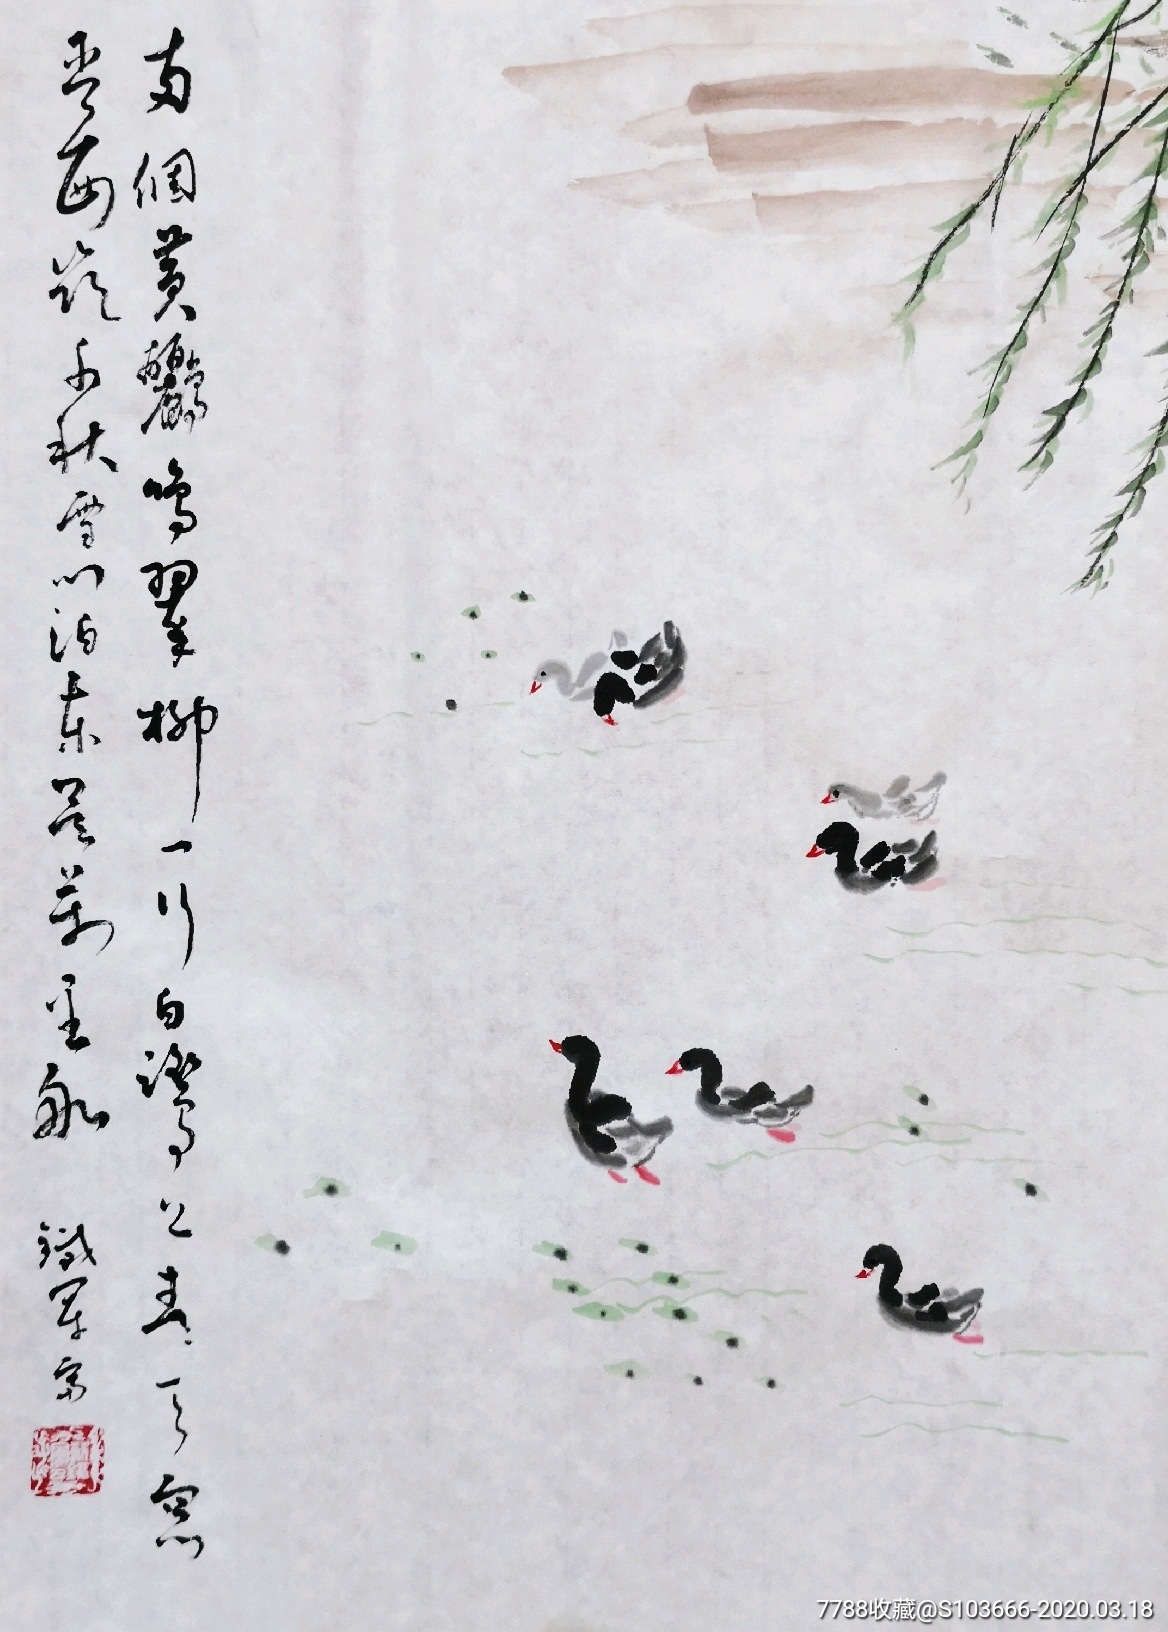 两個黄鸝鳴翠柳一行白鷺上青天窗
含西嶺千秋雪門泊東吴萬里船 鐵軍寫
7788收藏@S103666-2020.03.18